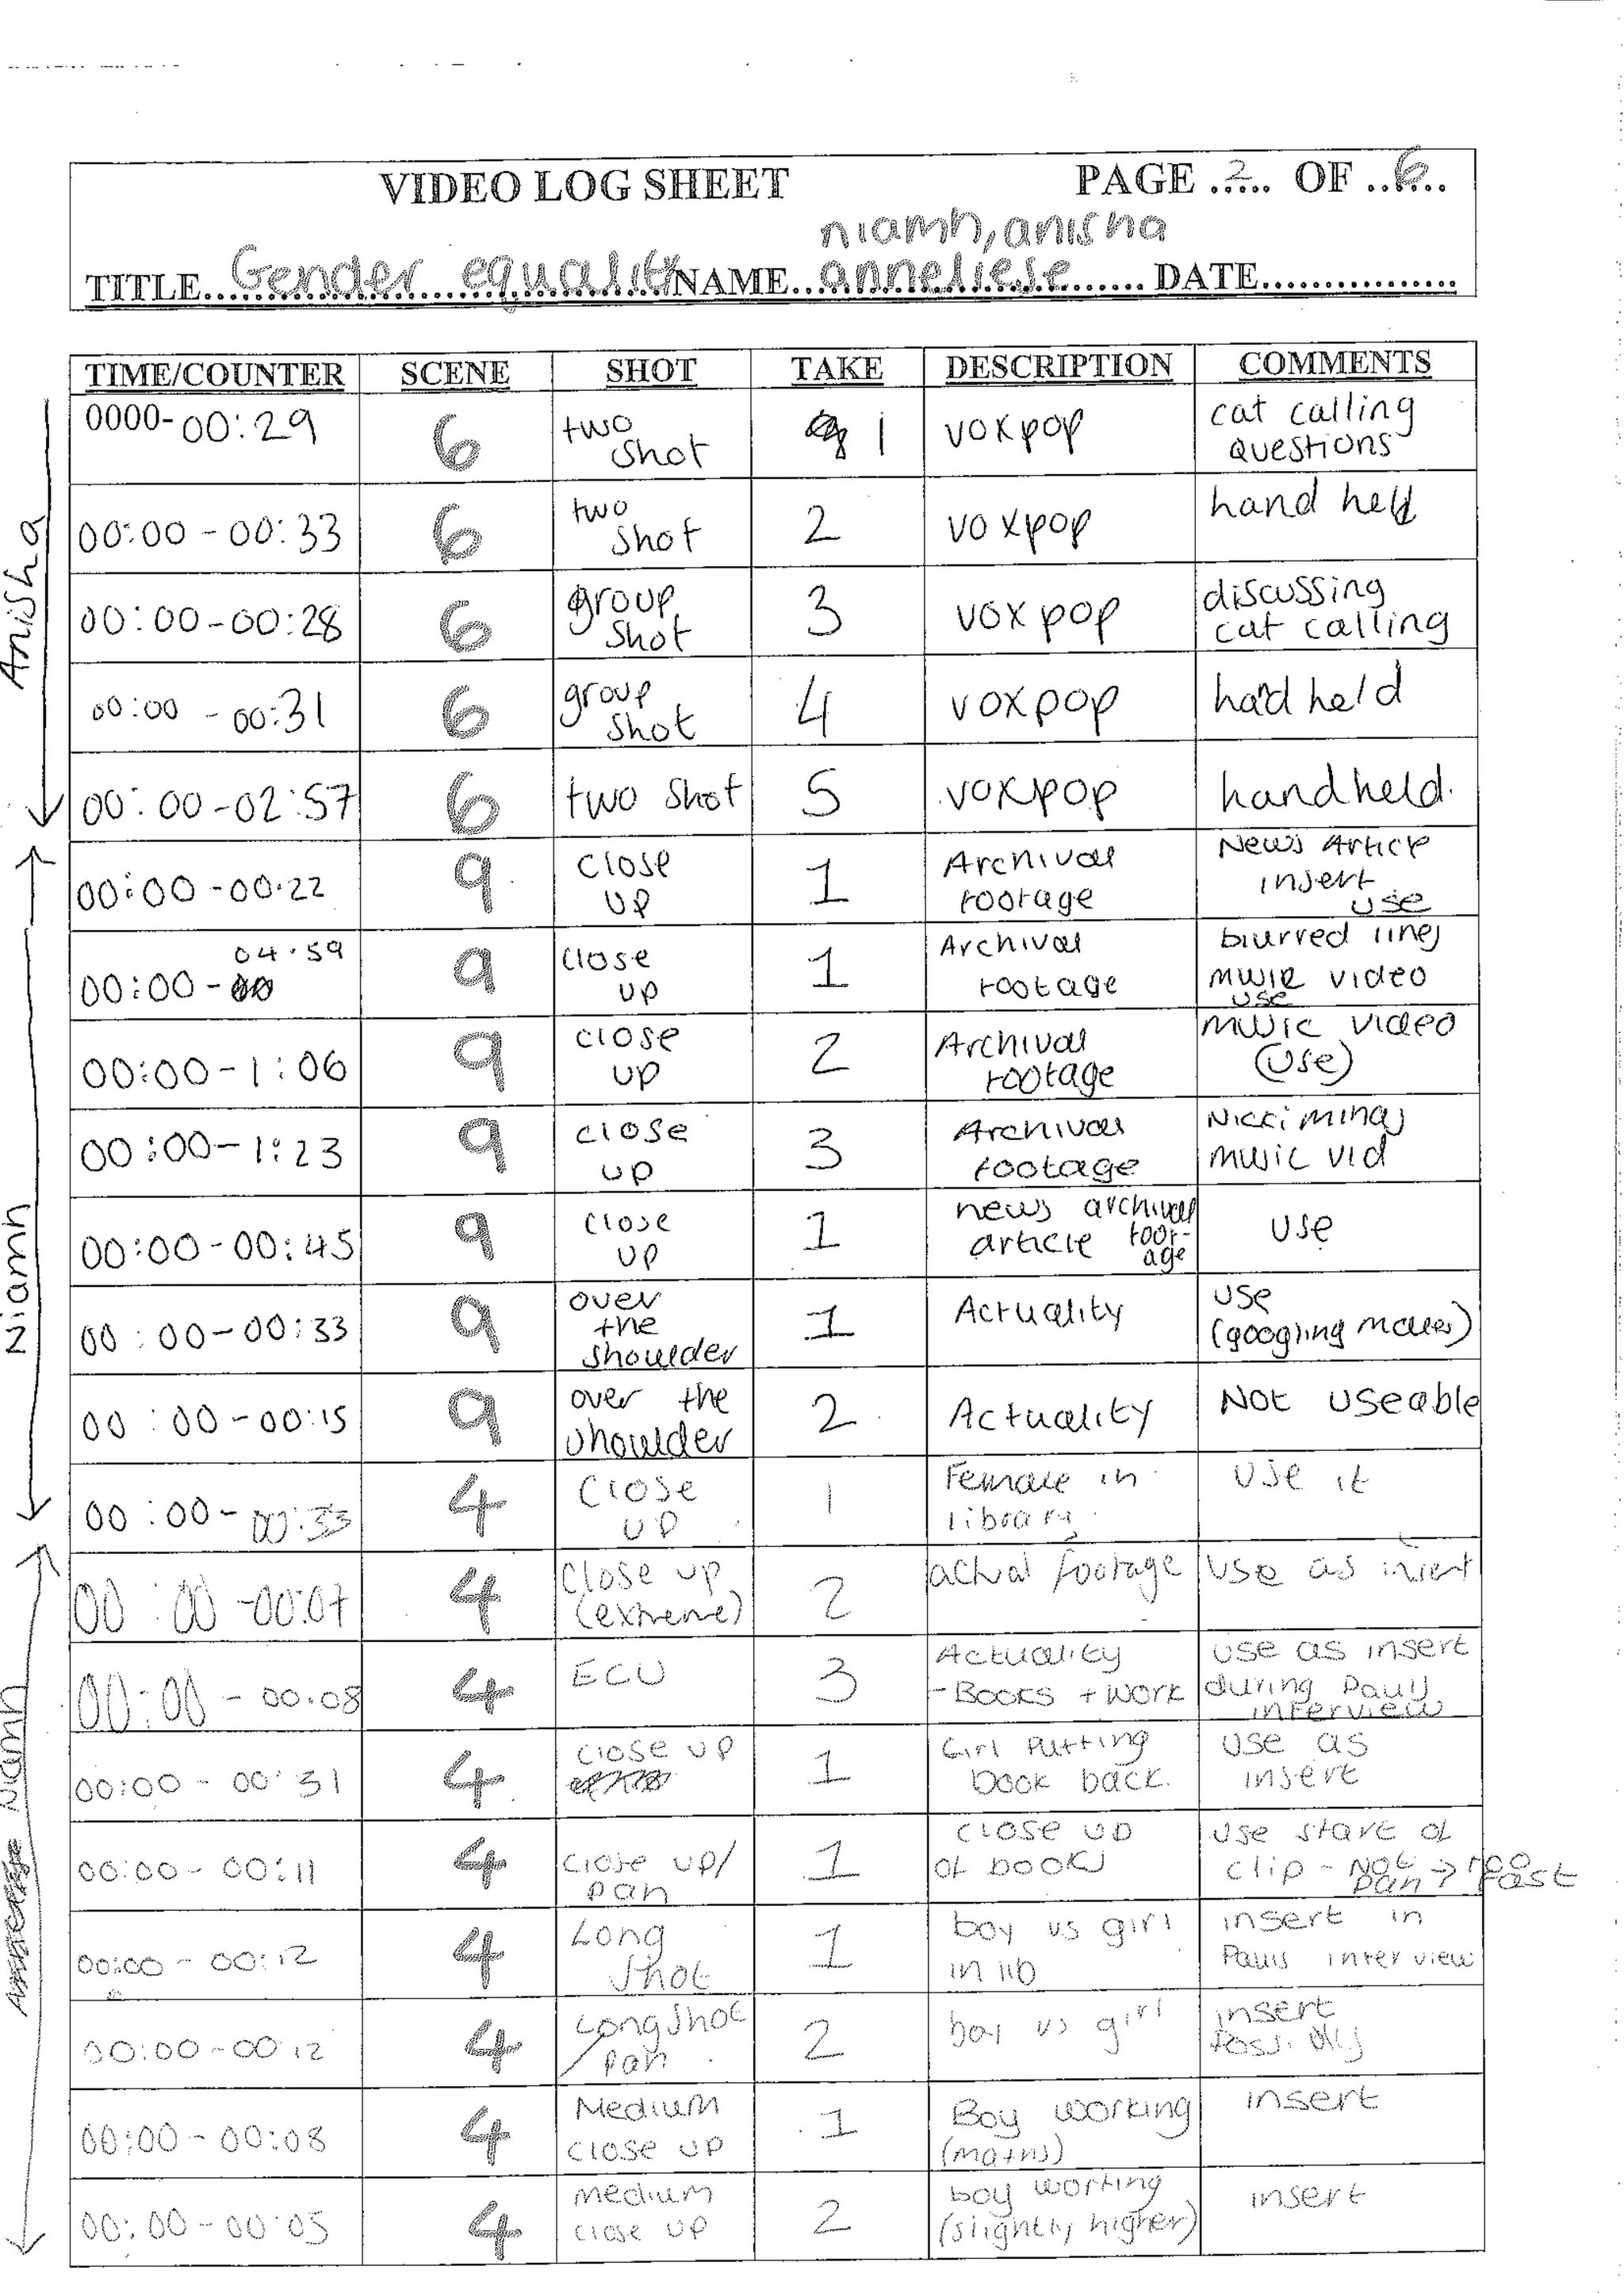 VIDEO LOG SHEET PAGE ..2... OF ..6....
niamh, anisha
TITLE..Gender equality NAME..anneliese....... DATE.................
TIME/COUNTER SCENE SHOT TAKE DESCRIPTION COMMENTS
Anisha
0000-00:29 6 two shot 1 voxpop cat calling questions
00:00-00:33 6 two shot 2 voxpop hand held
00:00-00:28 6 group shot 3 vox pop discussing cat calling
00:00-00:31 6 group shot 4 voxpop hand held
00:00-02:57 6 two shot 5 voxpop handheld.
Niamh
00:00-00.22 9 close up 1 Archival footage News Article insert use
00:00-04.59 9 close up 1 Archival footage blurred lines music video use
00:00-1:06 9 close up 2 Archival footage music video (use)
00:00-1:23 9 close up 3 Archival footage Nicki minaj music vid
00:00-00:45 9 close up 1 news archival article footage use
00:00-00:33 9 over the shoulder 1 Actuality use (googling males)
00:00-00:15 9 over the shoulder 2 Actuality Not useable
00:00-00:33 4 close up 1 Female in library. use it
Niamh
00:00-00:07 4 close up (extreme) 2 actual footage use as insert
00:00-00.08 4 ECU 3 Actuality - Books + work use as insert during Pauls interview
00:00-00:31 4 close up 1 Girl Putting book back. use as insert
00:00-00:11 4 close up/ pan 1 close up of books use start of clip - not pan → too fast
00:00-00:12 4 Long shot 1 boy vs girl in lib insert in Pauls interview
00:00-00:12 4 Longshot / pan 2 boy vs girl insert possibly
00:00-00:08 4 Medium close up 1 Boy working (maths) insert
00:00-00:05 4 medium close up 2 boy working (slightly higher) insert